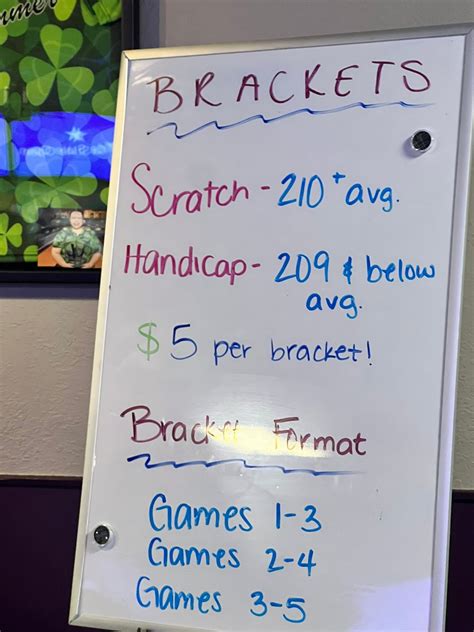 BRACKETS
Scratch - 210+ avg.
Handicap - 209 & below
avg.
$5 per bracket!
Bracket Format
Games 1-3
Games 2-4
Games 3-5